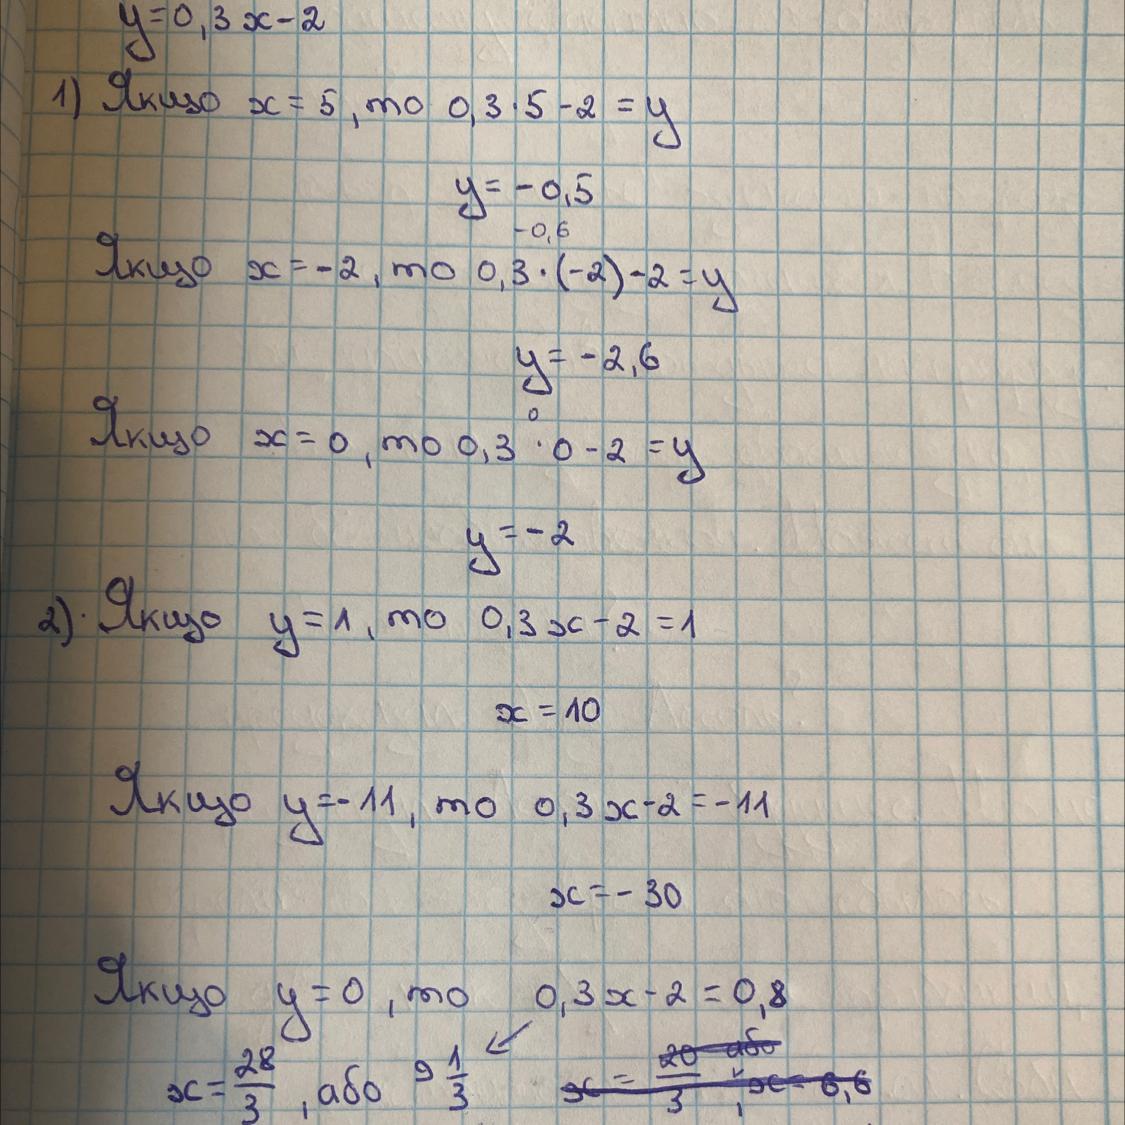 y=0,3x-2
1) Якщо x=5, то 0,3·5-2=y
y=-0,5
-0,6
Якщо x=-2, то 0,3·(-2)-2=y
y=-2,6
0
Якщо x=0, то 0,3·0-2=y
y=-2
2). Якщо y=1, то 0,3x-2=1
x=10
Якщо y=-11, то 0,3x-2=-11
x=-30
Якщо y=0, то 0,3x-2=0,8
x=28/3, або 9 1/3 x=20/3 або, x=6,6